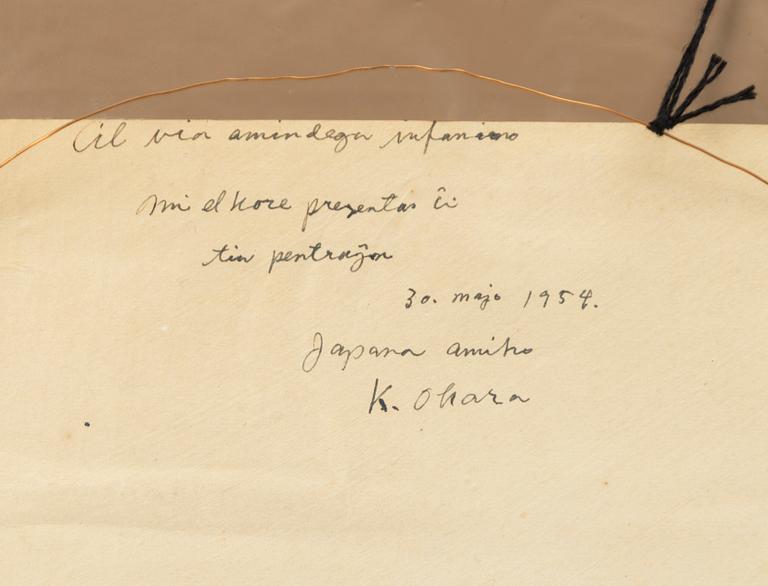 Al via amindega infanino
Mi elkore prezentas ĉi
tiu pentraĵon
30. majo 1954.
Japana amiko
K. Ohara